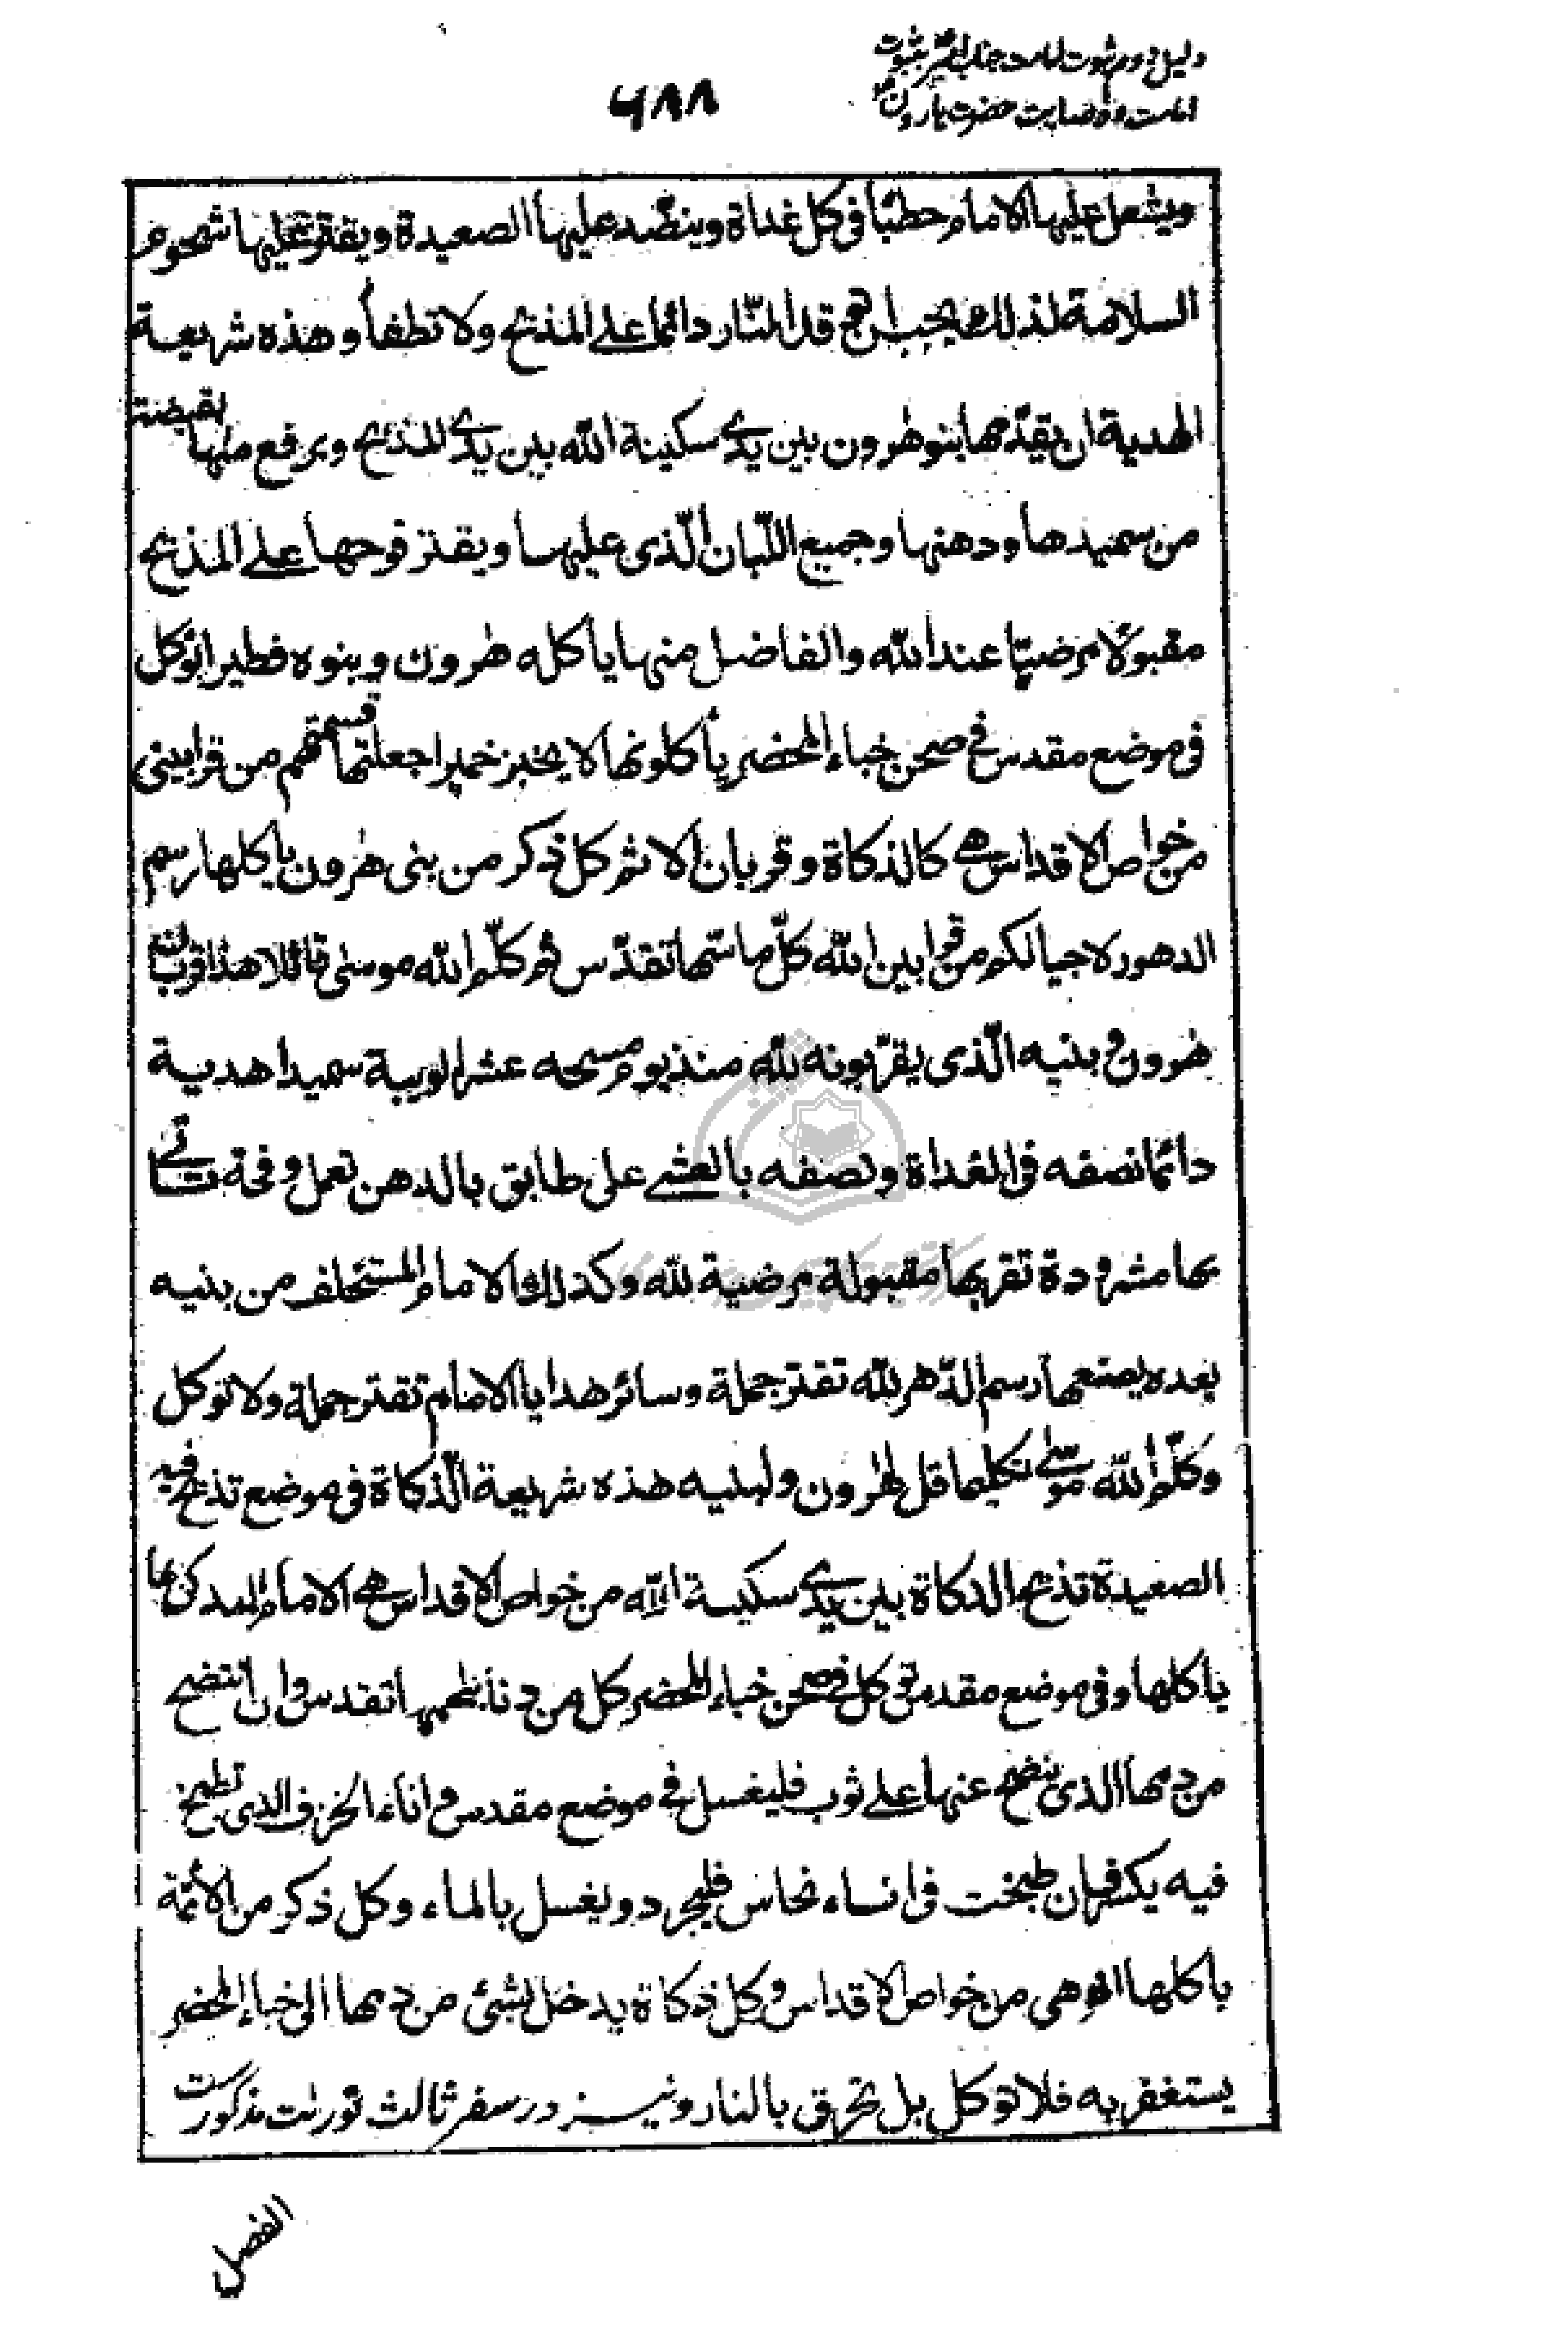 دلیل دوم ثبوت امامت جناب امیر بثبوت
امامت و وصایت حضرت هارون
۶۸۸
ویشعل علیها الامام حطبا فی کل غداة وینضّد علیها الصعیدة ویقتر علیها شحوم
السلامة لذلك یجب ان توقد النّار دائما علی المذبح ولا تطفأ وهذه شریعة
الهدیة ان یقدّمها بنو هٰرون بین یدی سکینة الله بین یدی المذبح ویرفع منها بقبضته
من سمیدها ودهنها وجمیع اللّبان الّذی علیها ویقتر فوحها علی المذبح
مقبولا مرضیّا عند الله والفاضل منها یأکله هٰرون وبنوه فطیرا تؤکل
فی موضع مقدس فی صحن خباء المحضر یأکلونها لا یخبز خمیرا جعلتها قسمتهم من قرابینی
من خواص الاقداس هی کالذکاة وقربان الاثم کل ذکر من بنی هٰرون یأکلها رسم
الدهور لاجیالکم من قرابین الله کلّ ما سّها تقدّس ثم کلّم الله موسی قائلا هذا قربان
هٰرون وبنیه الّذی یقرّبونه لله منذ یوم مسحه عشر الویبة سمیدا هدیة
دائما نصفه فی الغداة ونصفه بالعشی علی طابق بالدهن تعمل وفحة تأتی
بها مثرودة تقربها مقبولة مرضیة لله وکذلك الامام المستخلف من بنیه
بعده یصنعها رسم الدّهر لله تقتر جملة وسائر هدایا الامام تقتر جملة ولا تؤکل
وکلّم الله موسی تکلیما قل لهٰرون ولبنیه هذه شریعة الذّکاة فی موضع تذبح فیه
الصعیدة تذبح الذکاة بین یدی سکینة الله من خواص الاقداس هی الامام المذکی بها
یأکلها وفی موضع مقدس تؤکل فی صحن خباء المحضر کل من دنا بطهرها تقدس وان انتضح
من دمها الذی ینضح عنها علی ثوب فلیغسل فی موضع مقدس واناء الخزف الذی تطبخ
فیه یکسر فان طبخت فی اناء نحاس فلیجرد ویغسل بالماء وکل ذکر من الأئمة
یأکلها اذ هی من خواص الاقداس وکل ذکاة یدخل بشیٔ من دمها الی خباء المحضر
یستغفر به فلا تؤکل بل تحرق بالنار ونیز در سفر ثالث تورٰیت مذکورست
الفصل